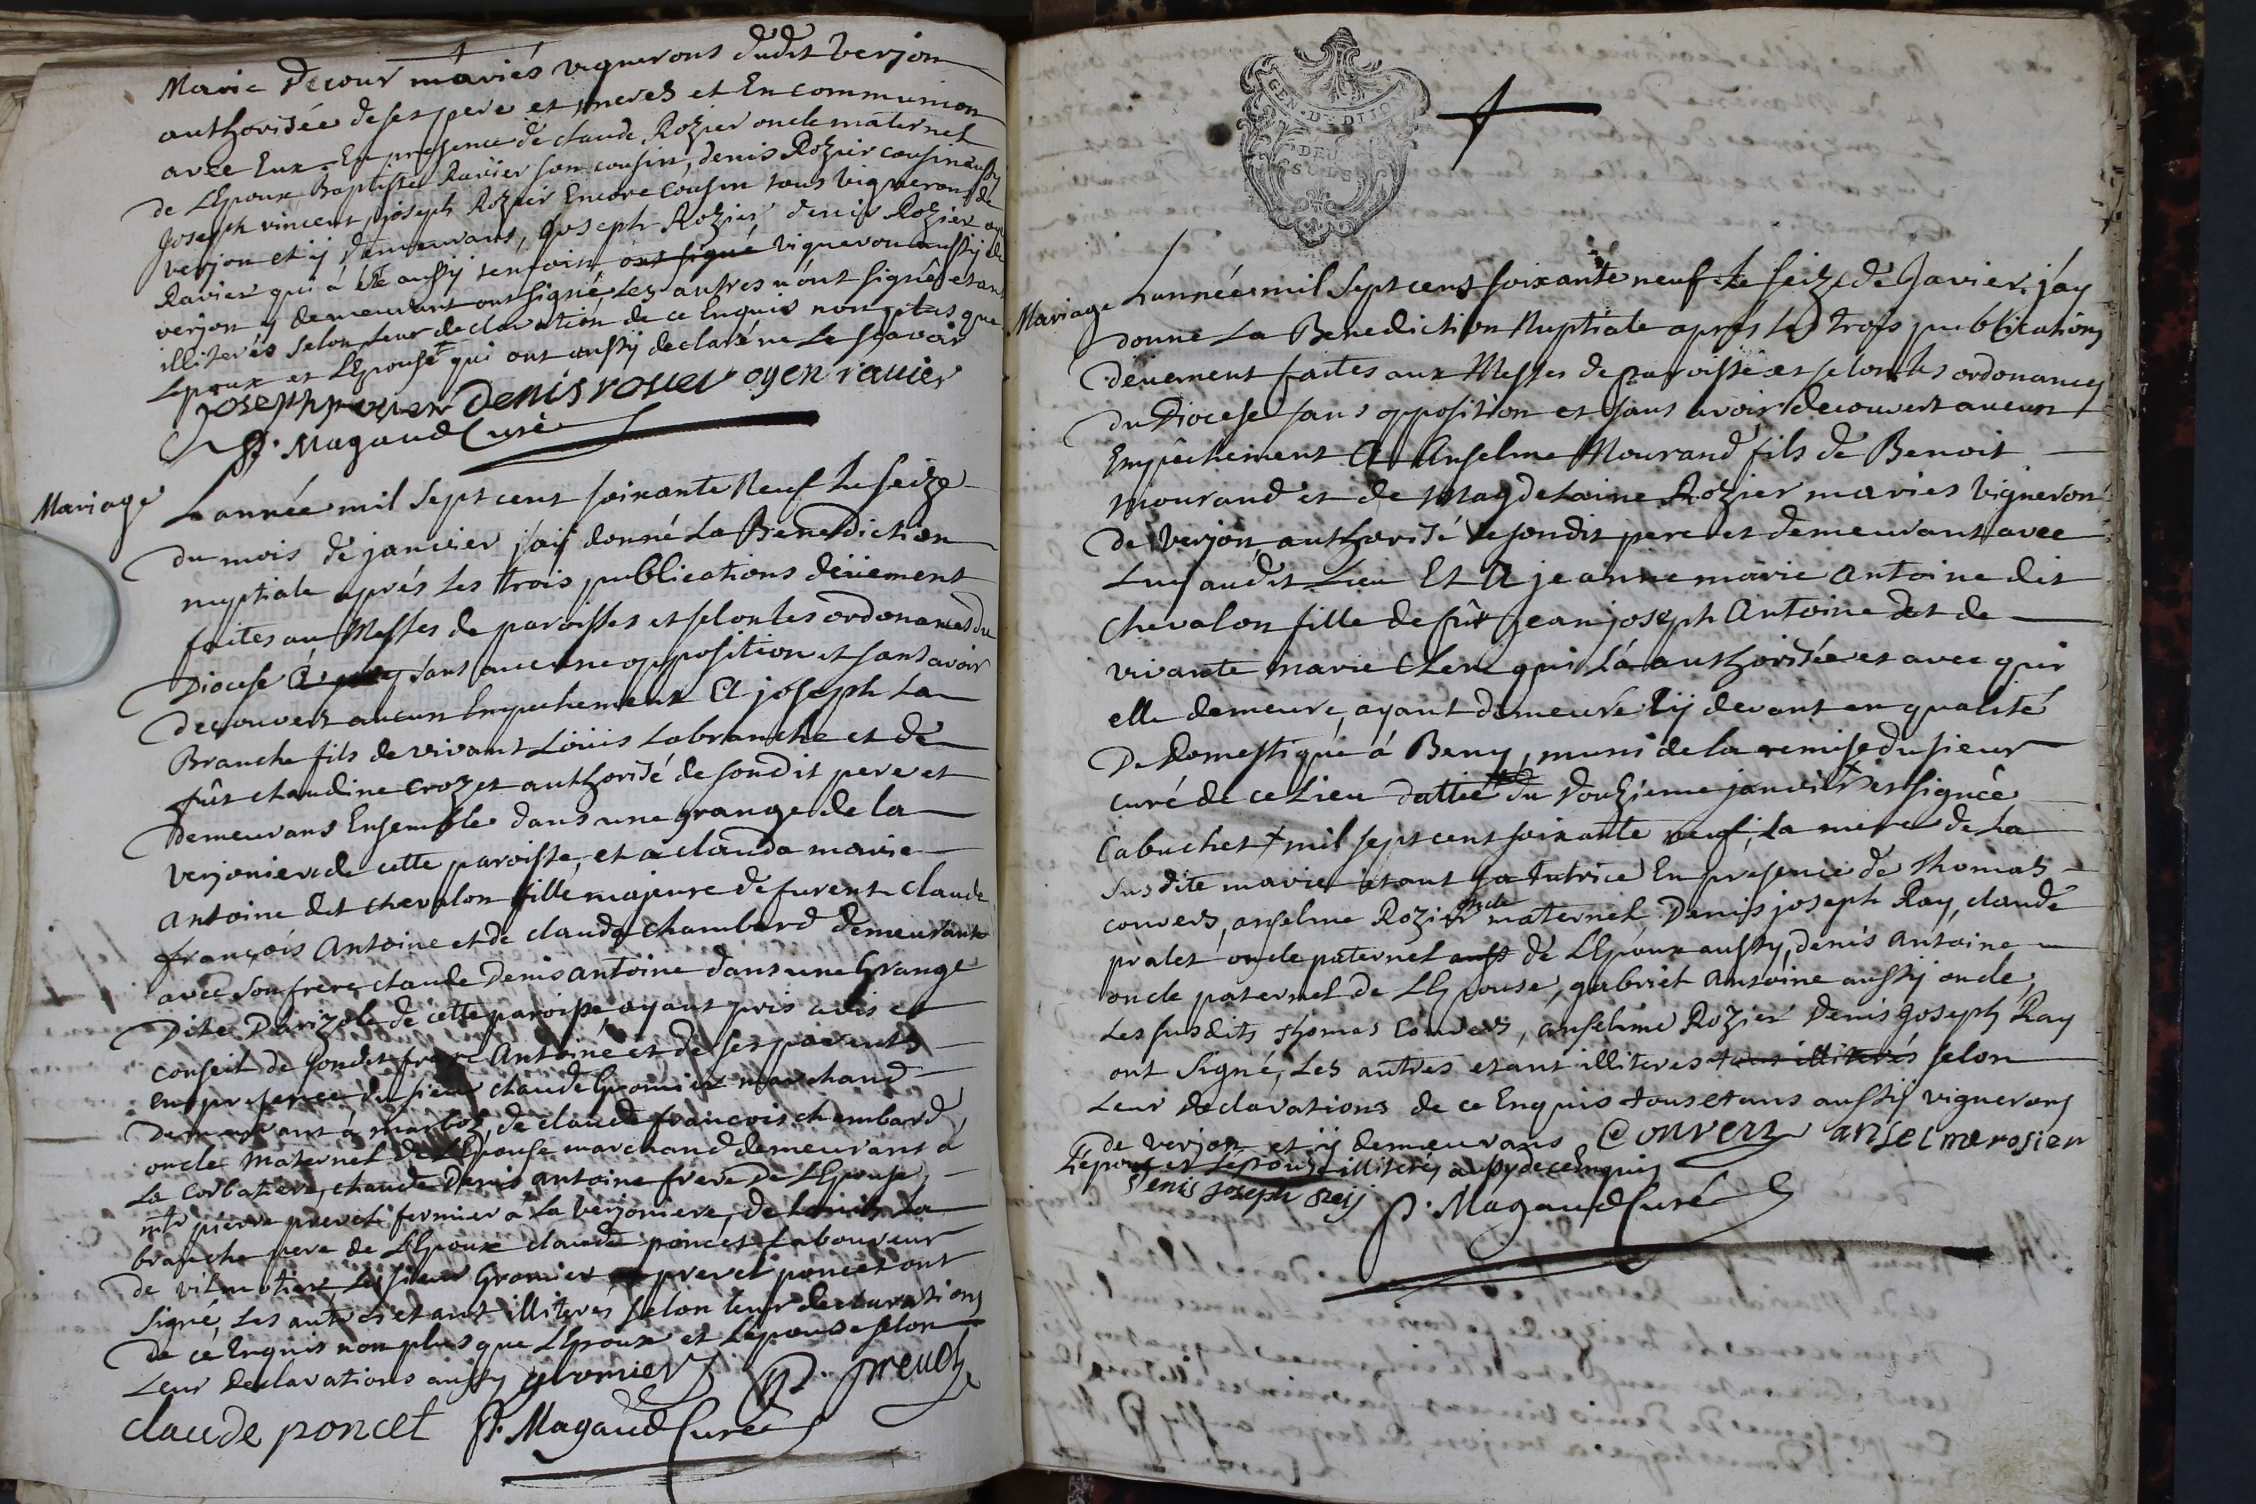 Marie Decour mariés vignerons dudit verjon
authorisée de ses pere et meres et En communion
avec Eux En presence de claude Rozier oncle maternel
de L'Epoux Baptiste Ravier son cousin, denis Rozier cousin aussy
Joseph vincent joseph Rozier Encore Cousin tous vignerons de
verjon et ij demeurans, Joseph Rozier denis Rozier
Ravier qui à été aussy temoin ont signé vigneron aussy de
verjon y demeurant ont signé Les autres n'ont signés etant
illiterés selon Leur declaration de ce Enquis non plus que
L'epoux et L'Epouse qui ont aussy declaré ne Le scavoir
Joseph denis rosier ogen ravier
P. Magaud Curé
Mariage
L'année mil sept cent soixante Neuf Le seize
du mois de janvier j'aij donné La Benediction
nuptiale aprés Les trois publications deüement
faites au Messes de paroisses et selon Les ordonances du
Diocese sans aucune opposition et sans avoir
decouvert aucun Empechement A joseph La
Branche fils de vivant Loüis Labranche et de
fût claudine crozet authorisé de sondit pere et
demeurans Ensemble dans une grange de la
verjoniere de cette paroisse, et à clauda marie
Antoine dit chevalon fille majeure de furent claude
françois Antoine et de clauda chambard demeurante
avec son frere claude Denis antoine dans une Grange
Dite Darizole de cette paroisse, ayant pris avis et
conseil de sondit frere Antoine et de ses parents
En presence du sieur claude Gromier marchand
Demeurant à marboz, de claude françois chambard
oncle Maternel de L'Epouse marchand demeurans à
La Corbatiere, claude Denis antoine frere De L'Epouse,
mtr pierre prevel fermier à La verjoniere, de Louis La
branche pere de L'Epoux claude poncet Laboureur
de vilmotier, Les sieur Gromier prevel poncet ont
signé, Les autres etant illiterés selon leur declarations
de ce Enquis non plus que L'Epoux et L'epouse selon
Leur declarations aussy gromier P. prevel
claude poncet P. Magaud Curé
GEN. D. DIJO
DEUX
SOLS DE
Mariage
L'année mil sept cent soixante neuf Le seize de Javier j'ay
donné La Benediction Nuptiale aprés Les trois publications
deüement faites aux Messes de paroisse et selon les ordonances
du Diocese sans opposition et sans avoir decouvert aucun
Empêchement A Anselme Mourand fils de Benoit
mourand et de Magdelaine Rozier mariés vignerons
de verjon, authorisé de sondit pere et demeurant avec
Luy audit Lieu Et A jeanne marie Antoine dit
Chevalon fille de fût jean joseph Antoine et de
vivante marie Clerc qui l'à authorisée et avec qui
elle demeure, ayant demeuré cij devant en qualité
De Domestique à Beny, muni de la remise du sieur
curé de ce Lieu dattée du douzieme janvier signée
Cabuchet mil sept cent soixante neuf, La mere de La
susdite marie etant sa tutrice En presence de thomas
convers, anselme Rozier oncle maternel Denis joseph Ray, claude
pralet oncle paternel de L'Epoux aussy, denis Antoine
oncle paternel de L'Epouse, gabriel Antoine aussy oncle,
Les susdits thomas Convers, anselme Rozier Denis Joseph Ray
ont signé, Les autres etant illiteres tous illiterés selon
Leur declarations de ce Enquis tous etans aussy vignerons
de verjon et ij demeurans Convers anselme rosier
L'epoux et L'epouse illiterés aussy de ce Enquis
denis joseph reij P. Magaud Curé